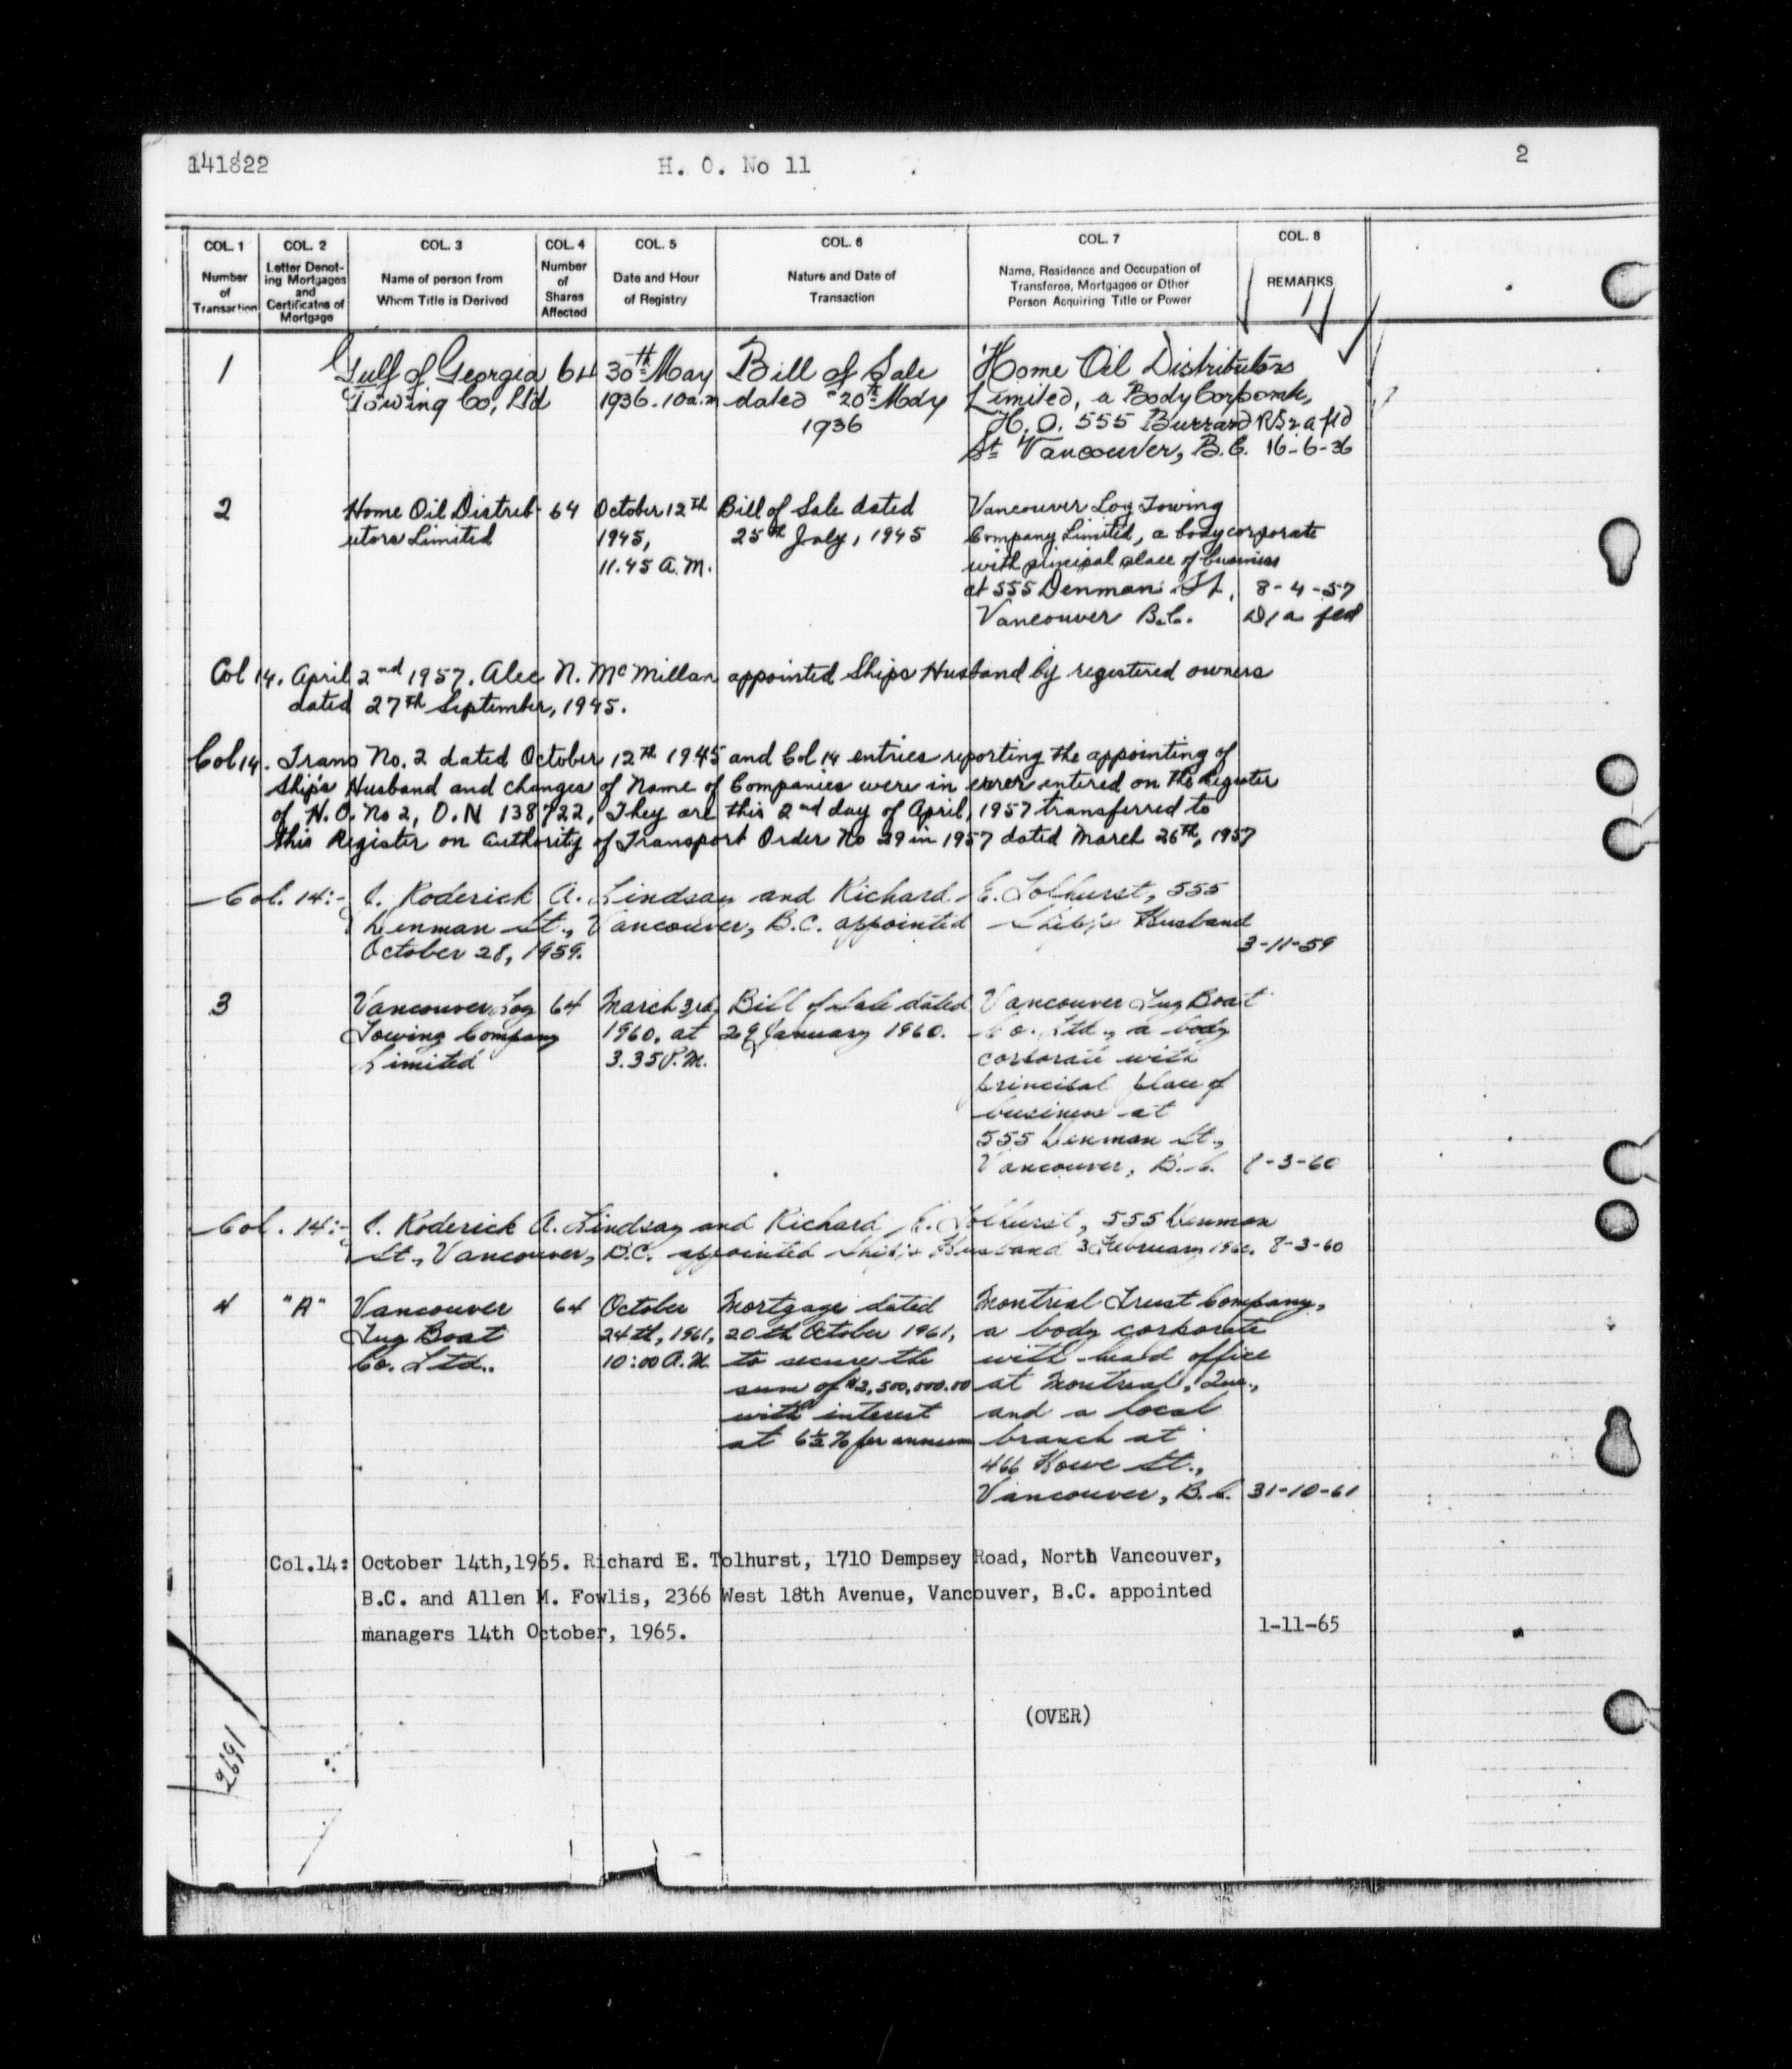 141822 H. O. No 11 2
COL. 1 COL. 2 COL. 3 COL. 4 COL. 5 COL. 6 COL. 7 COL. 8
Number of Transaction
Letter Denoting Mortgages and Certificates of Mortgage
Name of person from Whom Title is Derived
Number of Shares Affected
Date and Hour of Registry
Nature and Date of Transaction
Name, Residence and Occupation of Transferee, Mortgagee or Other Person Acquiring Title or Power
REMARKS
1 Gulf of Georgia 64 30th May Bill of Sale Home Oil Distributors
Towing Co, Ltd 1936. 10 a.m dated 20th May Limited, a Body Corporate,
1936 H. O. 555 Burrard
St Vancouver, B.C. 16-6-36
2 Home Oil Distrib- 64 October 12th Bill of Sale dated Vancouver Log Towing
utors Limited 1945, 25th July, 1945 Company Limited, a body corporate
11.45 A.M. with principal place of business
at 555 Denman St, 8-4-57
Vancouver B.C.
Col 14. April 2nd 1957. Alec N. McMillan appointed Ships Husband by registered owners
dated 27th September, 1945.
Col 14. Trans No. 2 dated October 12th 1945 and Col 14 entries reporting the appointing of
Ship's Husband and changes of Name of Companies were in error entered on the Register
of H.O. No 2, O.N 138722, They are this 2nd day of April, 1957 transferred to
this Register on authority of Transport Order No 29 in 1957 dated March 26th, 1957
Col. 14:- J. Roderick A. Lindsay and Richard E. Tolhurst, 555
Denman St., Vancouver, B.C. appointed Ship's Husband
October 28, 1959. 3-11-59
3 Vancouver Log 64 March 3rd, Bill of Sale dated Vancouver Tug Boat
Towing Company 1960, at 29 January 1960. Co. Ltd., a body
Limited 3.35 P.M. corporate with
principal place of
business at
555 Denman St.,
Vancouver, B.C. 8-3-60
Col. 14:- J. Roderick A. Lindsay and Richard E. Tolhurst, 555 Denman
St., Vancouver, B.C. appointed Ship's Husband 3 February 1960. 8-3-60
4 "A" Vancouver 64 October Mortgage dated Montreal Trust Company,
Tug Boat 24th, 1961, 20th October 1961, a body corporate
Co. Ltd.. 10:00 A.M. to secure the with head office
sum of $2,500,000.00 at Montreal, Que.,
with interest and a local
at 6½% per annum branch at
466 Howe St.,
Vancouver, B.C. 31-10-61
Col.14: October 14th,1965. Richard E. Tolhurst, 1710 Dempsey Road, North Vancouver,
B.C. and Allen M. Fowlis, 2366 West 18th Avenue, Vancouver, B.C. appointed
managers 14th October, 1965. 1-11-65
(OVER)